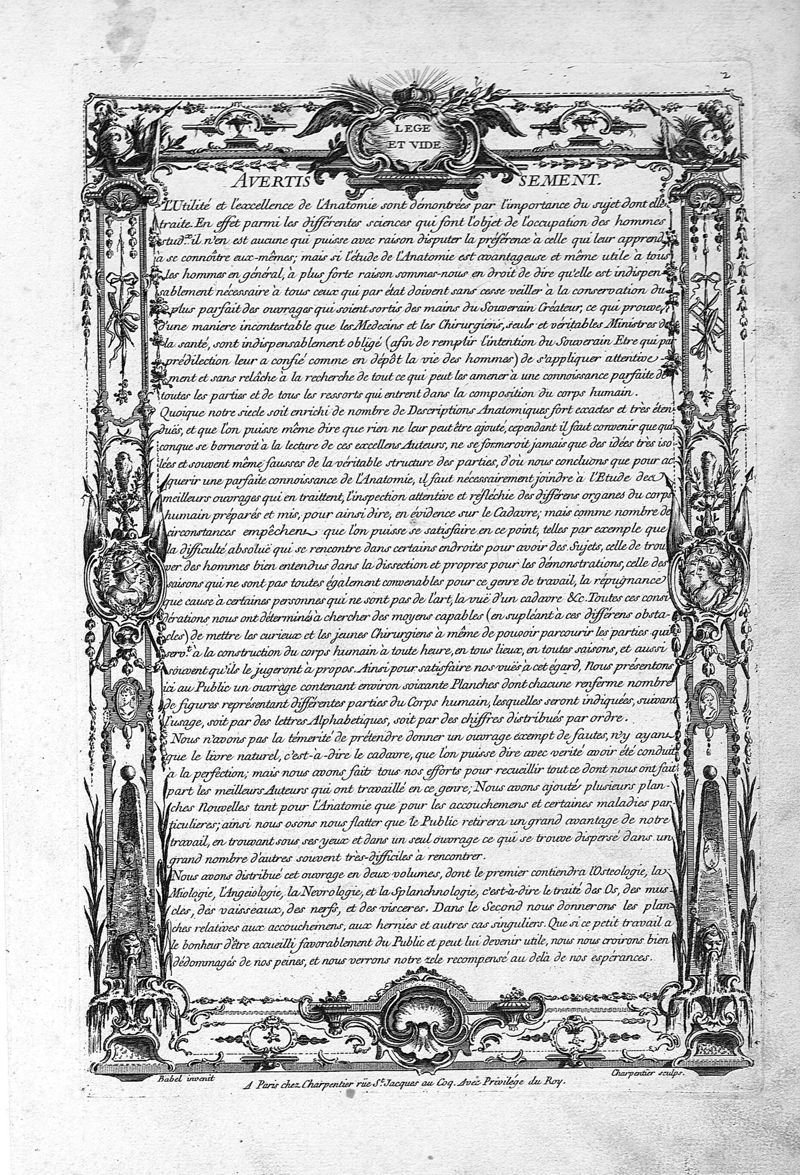 2
LEGE
ET VIDE
AVERTISSEMENT.
L'Utilité et l'excellence de l'Anatomie sont démontrées par l'importance du sujet dont elle
traite. En effet parmi les différentes sciences qui font l'objet de l'occupation des hommes
stud.x il n'en est aucune qui puisse avec raison disputer la préférence à celle qui leur apprend
à se connoître eux-mêmes; mais si l'étude de l'Anatomie est avantageuse et même utile à tous
les hommes en général, à plus forte raison sommes-nous en droit de dire qu'elle est indispen-
sablement nécessaire à tous ceux qui par état doivent sans cesse veiller à la conservation du
plus parfait des ouvrages qui soient sortis des mains du Souverain Créateur, ce qui prouve
d'une maniere incontestable que les Medecins et les Chirurgiens, seuls et véritables Ministres de
la santé, sont indispensablement obligé (afin de remplir l'intention du Souverain Etre qui par
prédilection leur a confié comme en dépôt la vie des hommes) de s'appliquer attentive-
ment et sans relâche à la recherche de tout ce qui peut les amener à une connoissance parfaite de
toutes les parties et de tous les ressorts qui entrent dans la composition du corps humain.
Quoique notre siecle soit enrichi de nombre de Descriptions Anatomiques fort exactes et très éten
duës, et que l'on puisse même dire que rien ne leur peut être ajouté, cependant il faut convenir que qui
conque se borneroit à la lecture de ces excellens Auteurs, ne se formeroit jamais que des idées très iso
lées et souvent même fausses de la véritable structure des parties, d'où nous concluons que pour ac
querir une parfaite connoissance de l'Anatomie, il faut nécessairement joindre à l'Etude des
meilleurs ouvrages qui en traittent, l'inspection attentive et refléchie des différens organes du corps
humain préparés et mis, pour ainsi dire, en évidence sur le Cadavre; mais comme nombre de
circonstances empêchent que l'on puisse se satisfaire en ce point, telles par exemple que
la difficulté absoluë qui se rencontre dans certains endroits pour avoir des Sujets, celle de trou
ver des hommes bien entendus dans la dissection et propres pour les démonstrations, celle des
saisons qui ne sont pas toutes également convenables pour ce genre de travail, la répugnance
que cause à certaines personnes qui ne sont pas de l'art, la vuë d'un cadavre &c. Toutes ces consi
dérations nous ont déterminés à chercher des moyens capables (en supléant à ces différens obsta-
cles) de mettre les curieux et les jeunes Chirurgiens à même de pouvoir parcourir les parties qui
serv.t à la construction du corps humain à toute heure, en tous lieux, en toutes saisons, et aussi
souvent qu'ils le jugeront à propos. Ainsi pour satisfaire nos vuës à cet égard, Nous présentons
ici au Public un ouvràge contenant environ soixante Planches dont chacune renferme nombre
de figures représentant différentes parties du Corps humain, lesquelles seront indiquées, suivant
l'usage, soit par des lettres Alphabetiques, soit par des chiffres distribués par ordre.
Nous n'avons pas la témerité de prétendre donner un ouvrage exempt de fautes, n'y ayant
que le livre naturel, c'est-à-dire le cadavre, que l'on puisse dire avec verité avoir été conduit
à la perfection; mais nous avons fait tous nos efforts pour recueillir tout ce dont nous ont fait
part les meilleurs Auteurs qui ont travaillé en ce genre; Nous avons ajouté plusieurs plan-
ches Nouvelles tant pour l'Anatomie que pour les accouchemens et certaines maladies par
ticulieres; ainsi nous osons nous flatter que le Public retirera un grand avantage de notre
travail, en trouvant sous ses yeux et dans un seul ouvrage ce qui se trouve dispersé dans un
grand nombre d'autres souvent très-difficiles à rencontrer.
Nous avons distribué cet ouvrage en deux volumes, dont le premier contiendra l'Osteologie, la
Miologie, l'Angeiologie, la Nevrologie, et la Splanchnologie, c'est-à-dire le traité des Os, des mus-
cles, des vaisseaux, des nerfs, et des visceres. Dans le Second nous donnerons les plan
ches relatives aux accouchemens, aux hernies et autres cas singuliers. Que si ce petit travail a
le bonheur d'être accueilli favorablement du Public et peut lui devenir utile, nous nous croirons bien
dédommagés de nos peines, et nous verrons notre zele recompensé au delà de nos espérances.
Babel invenit
Charpentier sculps.
A Paris chez Charpentier rüe S.t Jacques au Coq. Avéc Privilége du Roy.